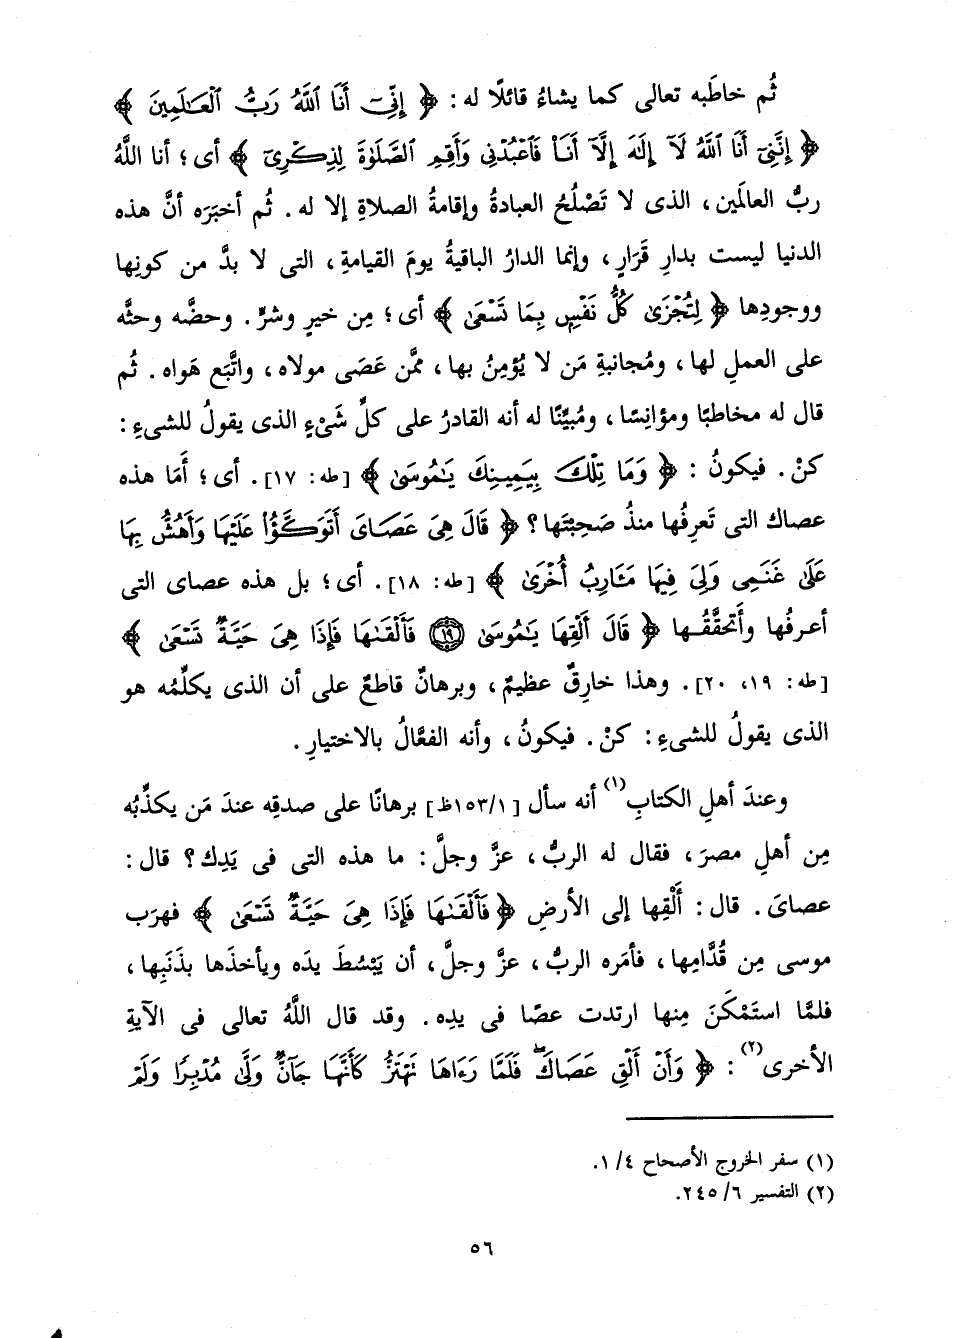 ثُم خاطَبه تعالى كما يشاءُ قائلًا له : ﴿ إِنِّىٓ أَنَا ٱللَّهُ رَبُّ ٱلْعَـٰلَمِينَ ﴾
﴿ إِنَّنِىٓ أَنَا ٱللَّهُ لَآ إِلَـٰهَ إِلَّآ أَنَا۠ فَٱعْبُدْنِى وَأَقِمِ ٱلصَّلَوٰةَ لِذِكْرِىٓ ﴾ أى ؛ أنا اللَّهُ
ربُّ العالَمين ، الذى لا تَصْلُحُ العبادةُ وإقامةُ الصلاةِ إلا له . ثُم أخبَرَه أنَّ هذه
الدنيا ليست بدارِ قَرَارٍ ، وإنما الدارُ الباقيةُ يومَ القيامةِ ، التى لا بدَّ من كونِها
ووجودِها ﴿ لِتُجْزَىٰ كُلُّ نَفْسٍۭ بِمَا تَسْعَىٰ ﴾ أى ؛ مِن خيرٍ وشرٍّ . وحضَّه وحثَّه
على العملِ لها ، ومُجانبةِ مَن لا يُؤمِنُ بها ، ممَّن عَصَى مولاه ، واتَّبَع هَواه . ثُم
قال له مخاطبًا ومؤانِسًا ، ومُبيِّنًا له أنه القادرُ على كلِّ شَىْءٍ الذى يقولُ للشىءِ :
كنْ . فيكونُ : ﴿ وَمَا تِلْكَ بِيَمِينِكَ يَـٰمُوسَىٰ ﴾ [طه: ١٧] . أى ؛ أمَا هذه
عصاك التى تَعرِفُها منذُ صَحِبْتَها ؟ ﴿ قَالَ هِىَ عَصَاىَ أَتَوَكَّؤُا۟ عَلَيْهَا وَأَهُشُّ بِهَا
عَلَىٰ غَنَمِى وَلِىَ فِيهَا مَـَٔارِبُ أُخْرَىٰ ﴾ [طه: ١٨] . أى ؛ بل هذه عصاى التى
أعرفُها وأَتحقَّقُـها ﴿ قَالَ أَلْقِهَا يَـٰمُوسَىٰ ۝١٩ فَأَلْقَىٰهَا فَإِذَا هِىَ حَيَّةٌ تَسْعَىٰ ﴾
[طه: ١٩، ٢٠] . وهذا خارِقٌ عظيمٌ ، وبرهانٌ قاطعٌ على أن الذى يكلِّمُه هو
الذى يقولُ للشىءِ : كنْ . فيكونُ ، وأنه الفعَّالُ بالاختيارِ .
وعندَ أهلِ الكتابِ(١) أنه سأل [١/١٥٣ظ] برهانًا على صدقِه عندَ مَن يكذِّبُه
مِن أهلِ مصرَ ، فقال له الربُّ ، عزَّ وجلَّ : ما هذه التى فى يَدِك ؟ قال :
عصاىَ . قال : أَلْقِها إلى الأرضِ ﴿ فَأَلْقَىٰهَا فَإِذَا هِىَ حَيَّةٌ تَسْعَىٰ ﴾ فهرَب
موسى مِن قُدَّامِها ، فأمَره الربُّ ، عزَّ وجلَّ ، أن يَبْسُطَ يدَه ويأخذَها بذَنَبِها ،
فلمَّا استَمْكَنَ مِنها ارتدت عصًا فى يدِه . وقد قال اللَّهُ تعالى فى الآيةِ
الأخرى(٢) : ﴿ وَأَنْ أَلْقِ عَصَاكَ ۖ فَلَمَّا رَءَاهَا تَهْتَزُّ كَأَنَّهَا جَآنٌّ وَلَّىٰ مُدْبِرًا وَلَمْ
(١) سفر الخروج الأصحاح ٤/ ١.
(٢) التفسير ٦/ ٢٤٥.
٥٦